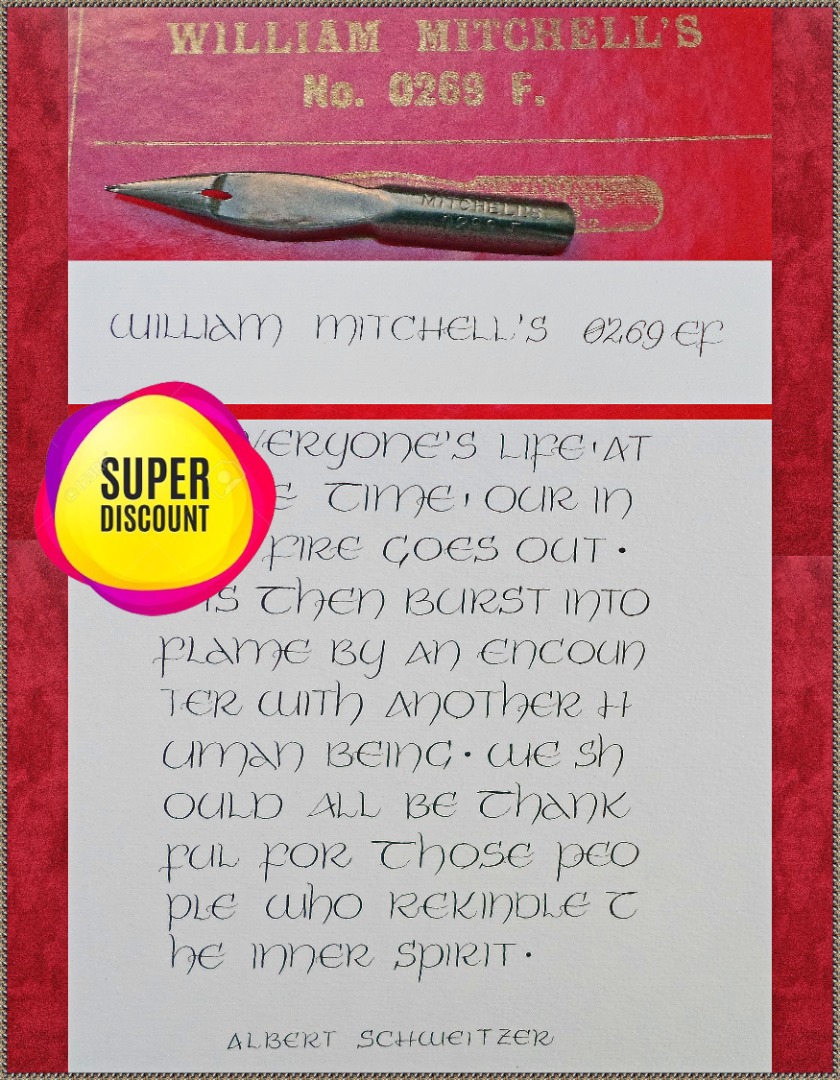 WILLIAM MITCHELL'S
No. 0269 F.
MITCHELL'S
WILLIAM MITCHELL'S 0269 EF
SUPER
DISCOUNT
VERYONE'S LIFE, AT
E TIME, OUR IN
FIRE GOES OUT ·
IS THEN BURST INTO
FLAME BY AN ENCOUN
TER WITH ANOTHER H
UMAN BEING · WE SH
OULD ALL BE THANK
FUL FOR THOSE PEO
PLE WHO REKINDLE T
HE INNER SPIRIT ·
ALBERT SCHWEITZER